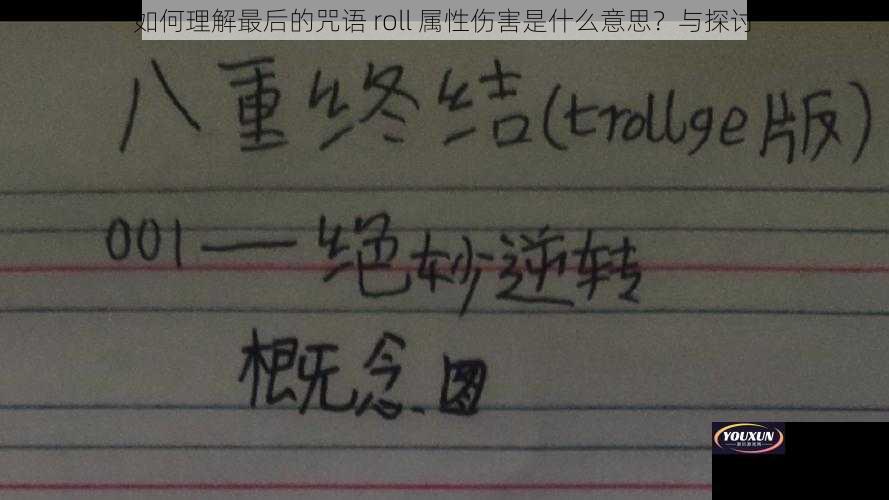 如何理解最后的咒语 roll 属性伤害是什么意思？与探讨
八重终结(trollge版)
001—绝妙逆转
概念图
YOUXUN